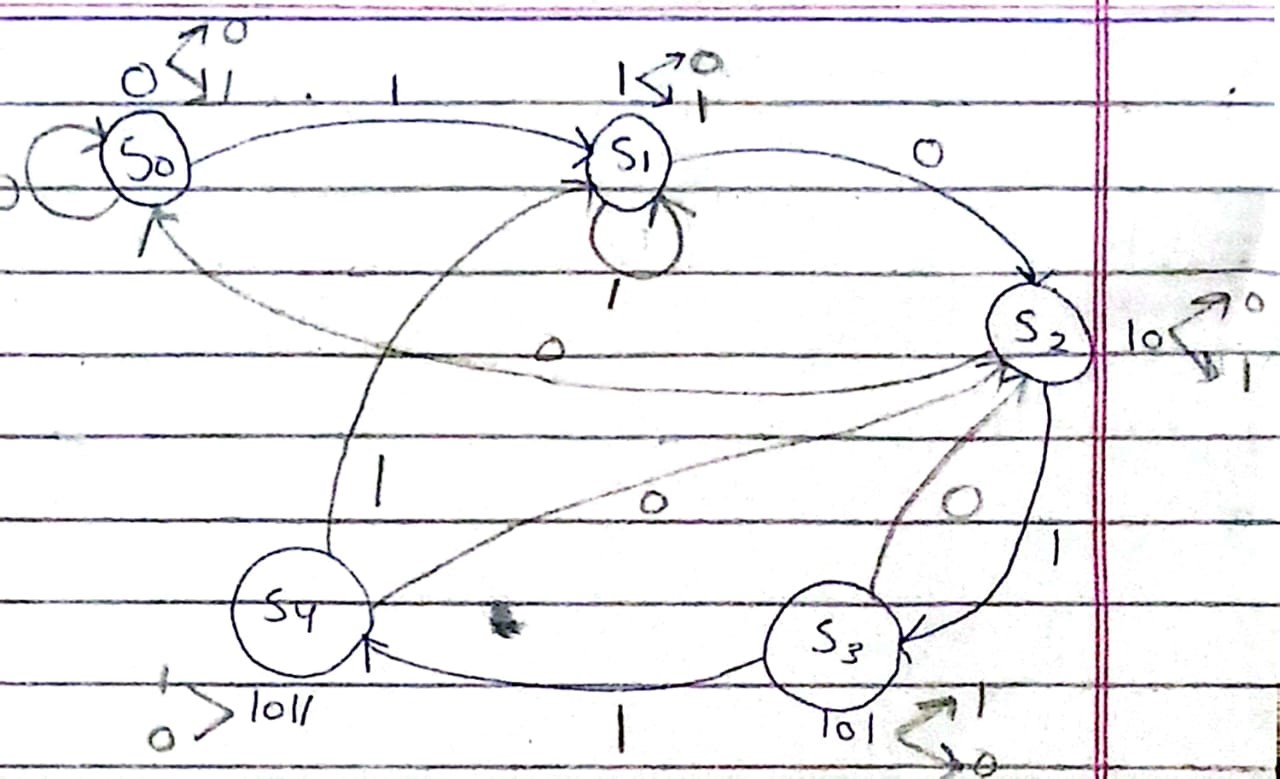 0 0 1
1 0 1
1
S0
S1
0
0
1
S2
10 0 1
0
1
0
0
1
S4
S3
1 0 1011
1
101 1 0